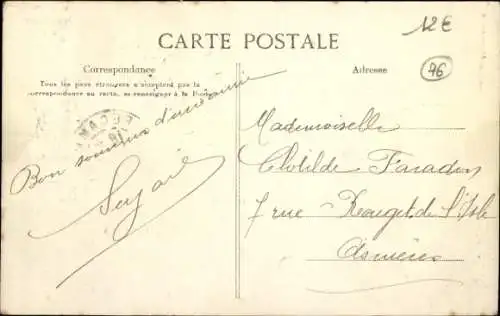 CARTE POSTALE
12€
76
Correspondance
Tous les pays étrangers n'acceptent pas la
correspondance au recto, se renseigner à la Poste
Bon souvenir d'une amie
Adresse
Mademoiselle
Clotilde Faradon
7 rue Rouget de l'Isle
Asnières